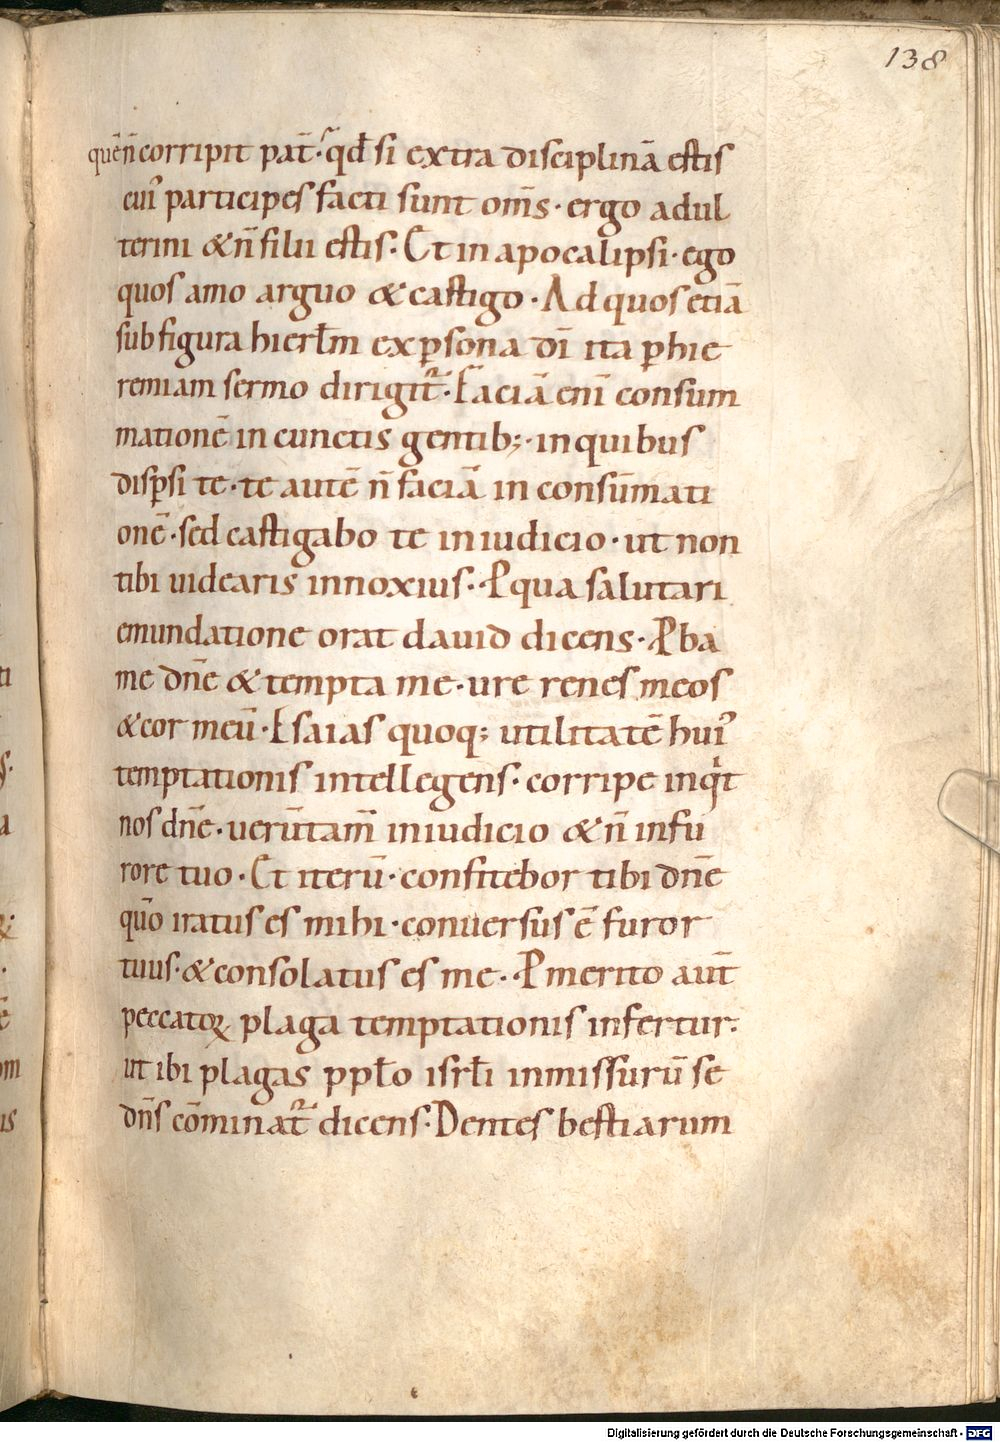 138
quē n̄ corripit pat̄· qd̄ si extra disciplinā estis
cui᷒ participes facti sunt om̄s· ergo adul
terini & n̄ filii estis· Et in apocalipsi· ego
quos amo arguo & castigo· Ad quos etiā
sub figura hierl̄m ex ꝑsona dī ita ꝑ hie
remiam sermo dirigit᷑· Faciā enī consum
mationē in cunctis gentib;· in quibus
disꝑsi te· te autē n̄ faciā in consūmati
onē· sed castigabo te in iudicio· ut non
tibi uidearis innoxius· P qua salutari
emundatione orat dauid dicens· Pba
me dn̄e & tempta me· ure renes meos
& cor meū· Esaias quoq; utilitatē hui᷒
temptationis intellegens· corripe inqͥt
nos dn̄e· uerūtam̄ in iudicio & n̄ in fu
rore tuo· Et iterū· confitebor tibi dn̄e
qūo iratus es mihi· conuersus ē furor
tuus· & consolatus es me· P merito aut̄
peccatoꝝ plaga temptationis infertur·
ut ibi plagas ppl̄o isrl̄i inmissurū se
dn̄s cōminat᷑ dicens· Dentes bestiarum
Digitalisierung gefördert durch die Deutsche Forschungsgemeinschaft - DFG